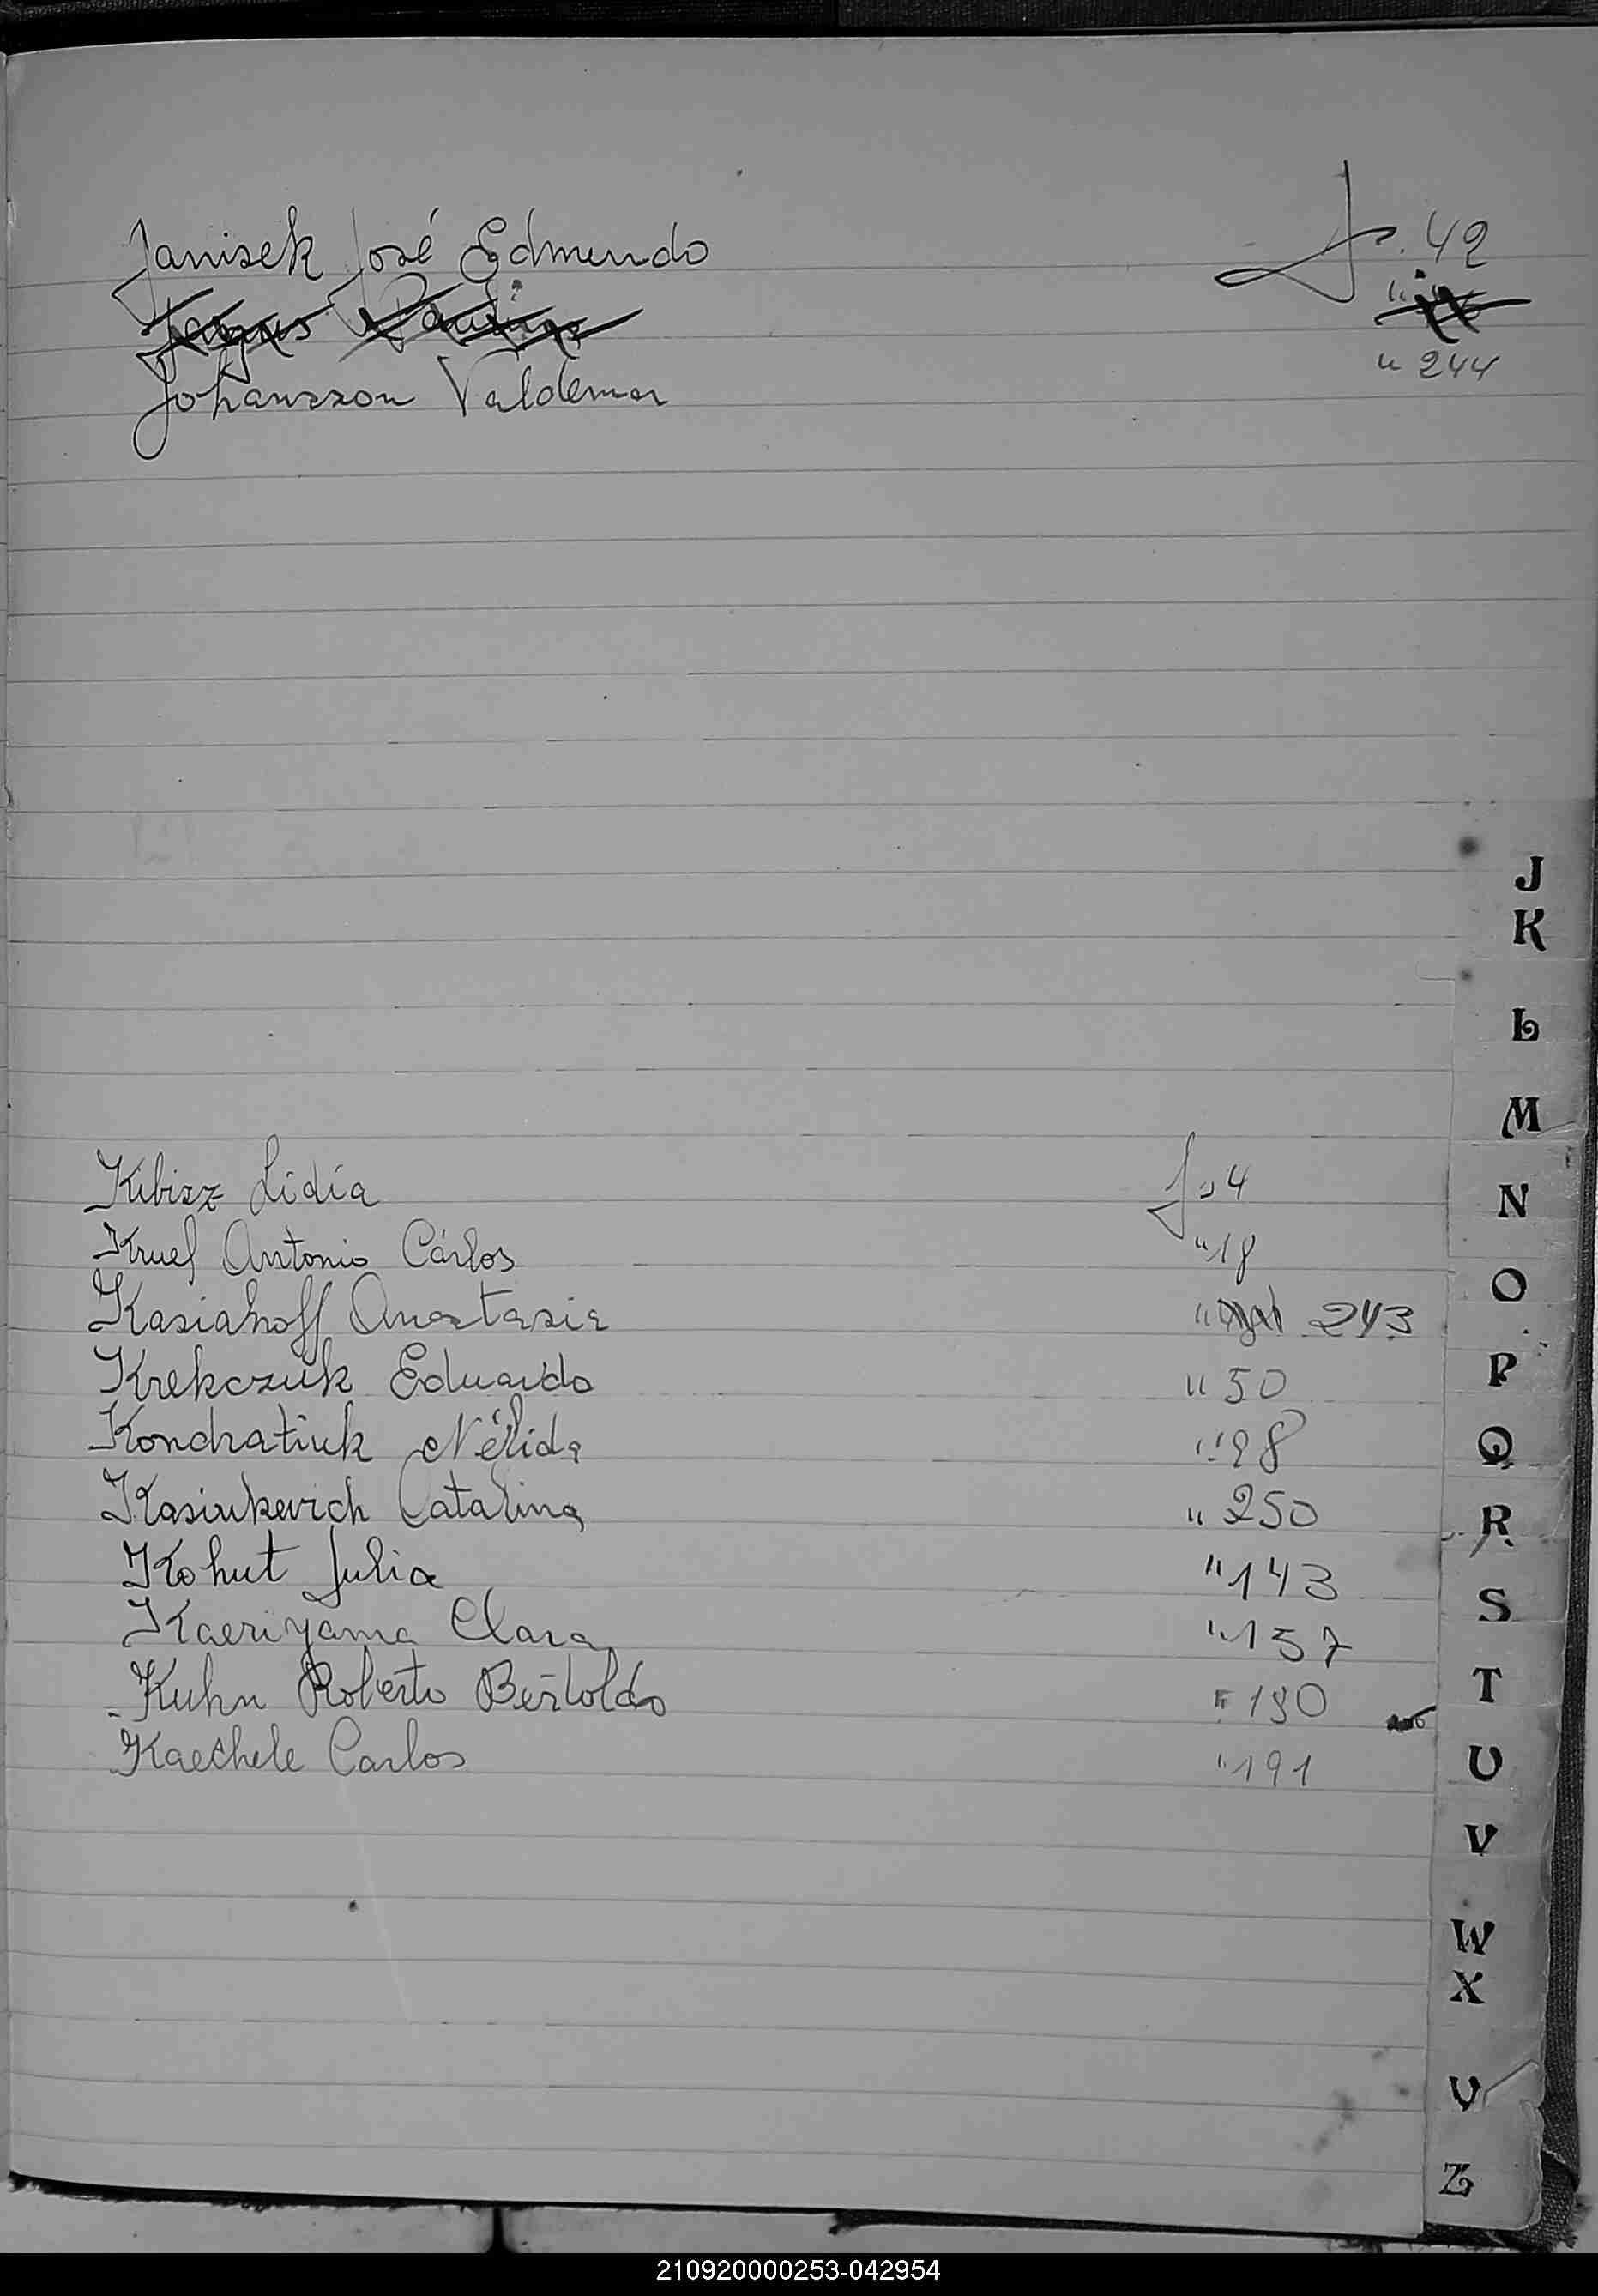 Janisek José Edmundo f. 42
Johansson Valdemar " 244
J
K
L
M
Kibisz Lidia f 4
N
Kruef Antonio Cárlos " 18
O
Kasiakoff Anastasia " 243
P
Krekczuk Eduardo " 50
Kondratiuk Nélida " 98
Q
Kasiukevich Catalina " 250
R
Kohut Julia " 143
S
Kaeriyama Clara " 157
T
Kuhn Roberto Bertoldo " 180
Kaechele Carlos " 191
U
V
W
X
Z
210920000253-042954